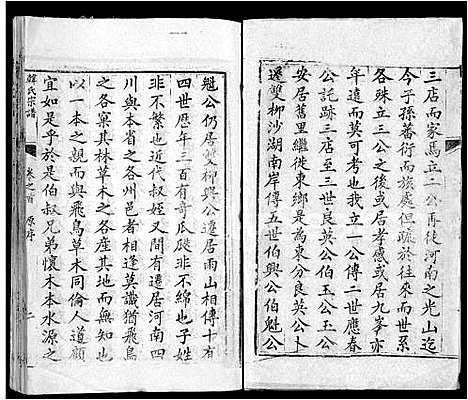 三店而家焉立二公再徙河南之光山迄
今子孫蕃衍而旅處但疏於往來而世系
各殊立三公之後或居孝感或居九峯亦
年遠而莫可考也我六一公傳二世應春
公託跡三店至三世良英公玉公玉公
安居舊里繼徙東鄉是為東分良英公卜
遷雙柳沙湖南岸傳五世伯興公伯魁公
魁公仍居雙柳興公遷居雨山相傳十有
四世歷年三百有奇瓜瓞非不綿也子姓
非不繁也近代叔姪又間有遷居河南四
川與本省之各州邑者相逢莫識猶飛鳥
之各窠其林草木之各產其地而無知也
以一本之親而與飛鳥草木同倫人道顧
宜如是乎於是伯叔兄弟懷木本水源之
韓氏宗譜
卷之首
原序
二